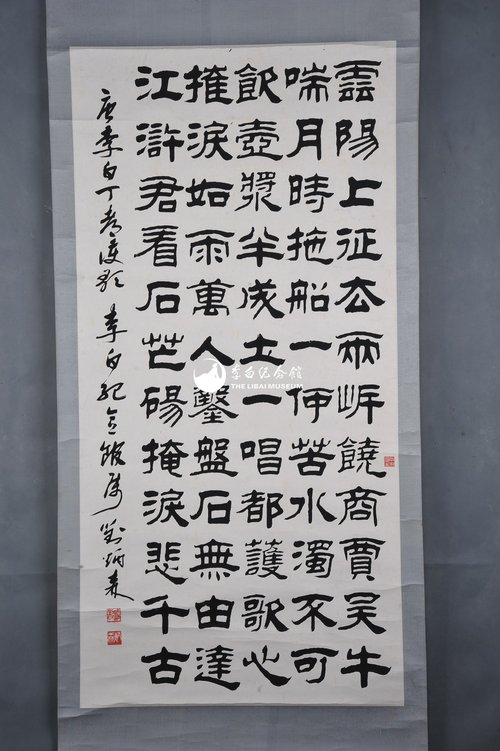 雲陽上征去兩岸饒商賈吳牛
喘月時拖船一何苦水濁不可
飲壺漿半成土一唱都護歌心
摧淚如雨萬人鑿盤石無由達
江滸君看石芒碭掩淚悲千古
唐李白丁都護歌 李白紀念館屬 劉炳森
李白纪念馆
THE LIBAI MUSEUM